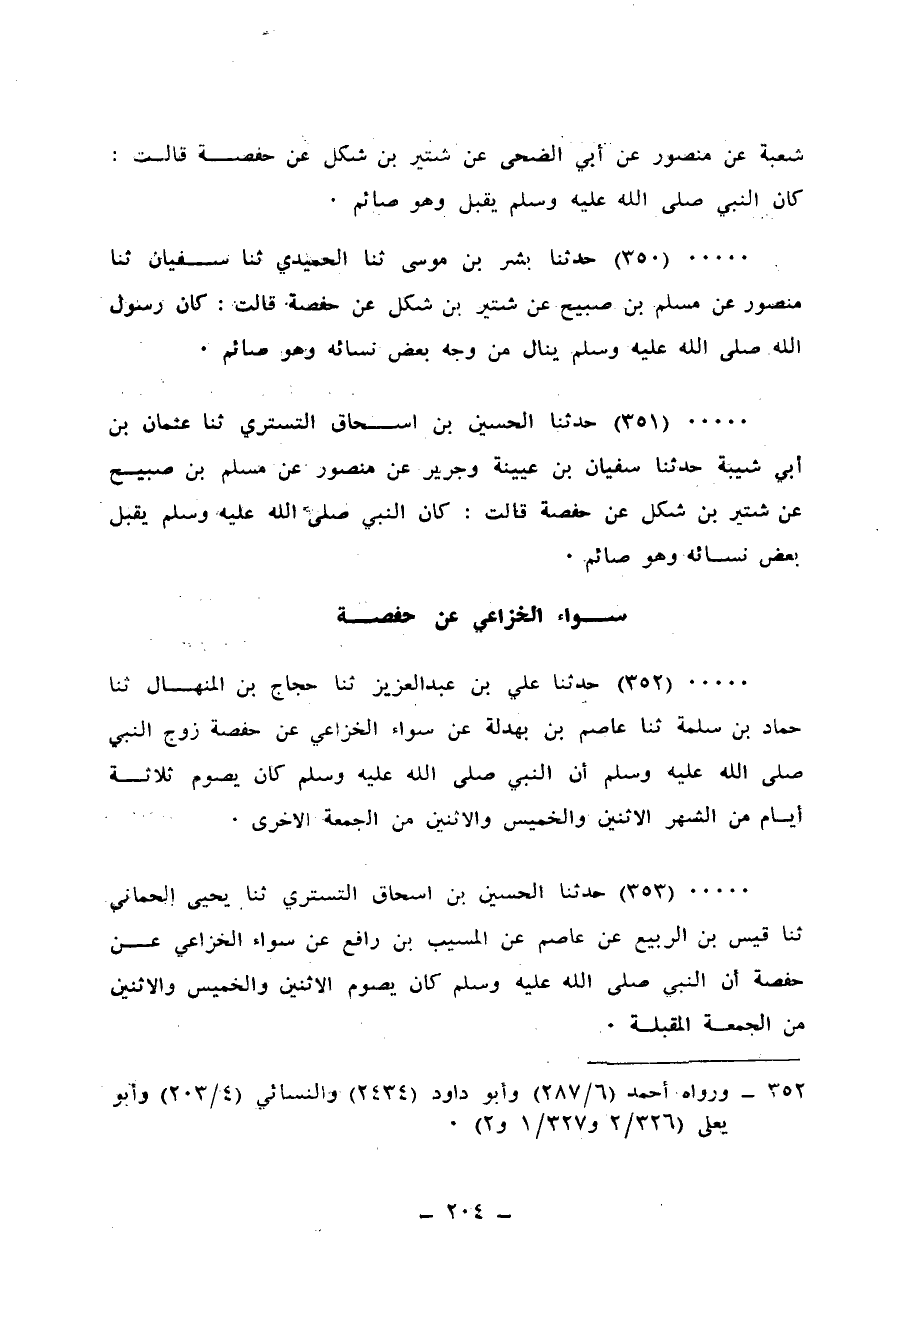 شعبة عن منصور عن أبي الضحى عن شتير بن شكل عن حفصة قالت :
كان النبي صلى الله عليه وسلم يقبل وهو صائم ٠
٠٠٠٠٠ (٣٥٠) حدثنا بشر بن موسى ثنا الحميدي ثنا سفيان ثنا
منصور عن مسلم بن صبيح عن شتير بن شكل عن حفصة قالت : كان رسول
الله صلى الله عليه وسلم ينال من وجه بعض نسائه وهو صائم ٠
٠٠٠٠٠ (٣٥١) حدثنا الحسين بن اسحاق التستري ثنا عثمان بن
أبي شيبة حدثنا سفيان بن عيينة وجرير عن منصور عن مسلم بن صبيح
عن شتير بن شكل عن حفصة قالت : كان النبي صلى الله عليه وسلم يقبل
بعض نسائه وهو صائم ٠
سواء الخزاعي عن حفصة
٠٠٠٠٠ (٣٥٢) حدثنا علي بن عبدالعزيز ثنا حجاج بن المنهال ثنا
حماد بن سلمة ثنا عاصم بن بهدلة عن سواء الخزاعي عن حفصة زوج النبي
صلى الله عليه وسلم أن النبي صلى الله عليه وسلم كان يصوم ثلاثة
أيام من الشهر الاثنين والخميس والاثنين من الجمعة الاخرى ٠
٠٠٠٠٠ (٣٥٣) حدثنا الحسين بن اسحاق التستري ثنا يحيى الحماني
ثنا قيس بن الربيع عن عاصم عن المسيب بن رافع عن سواء الخزاعي عن
حفصة أن النبي صلى الله عليه وسلم كان يصوم الاثنين والخميس والاثنين
من الجمعة المقبلة ٠
٣٥٢ ـ ورواه أحمد (٢٨٧/٦) وأبو داود (٢٤٣٤) والنسائي (٢٠٣/٤) وأبو
يعلى (٢/٣٢٦ و١/٣٢٧ و٢) ٠
ـ ٢٠٤ ـ